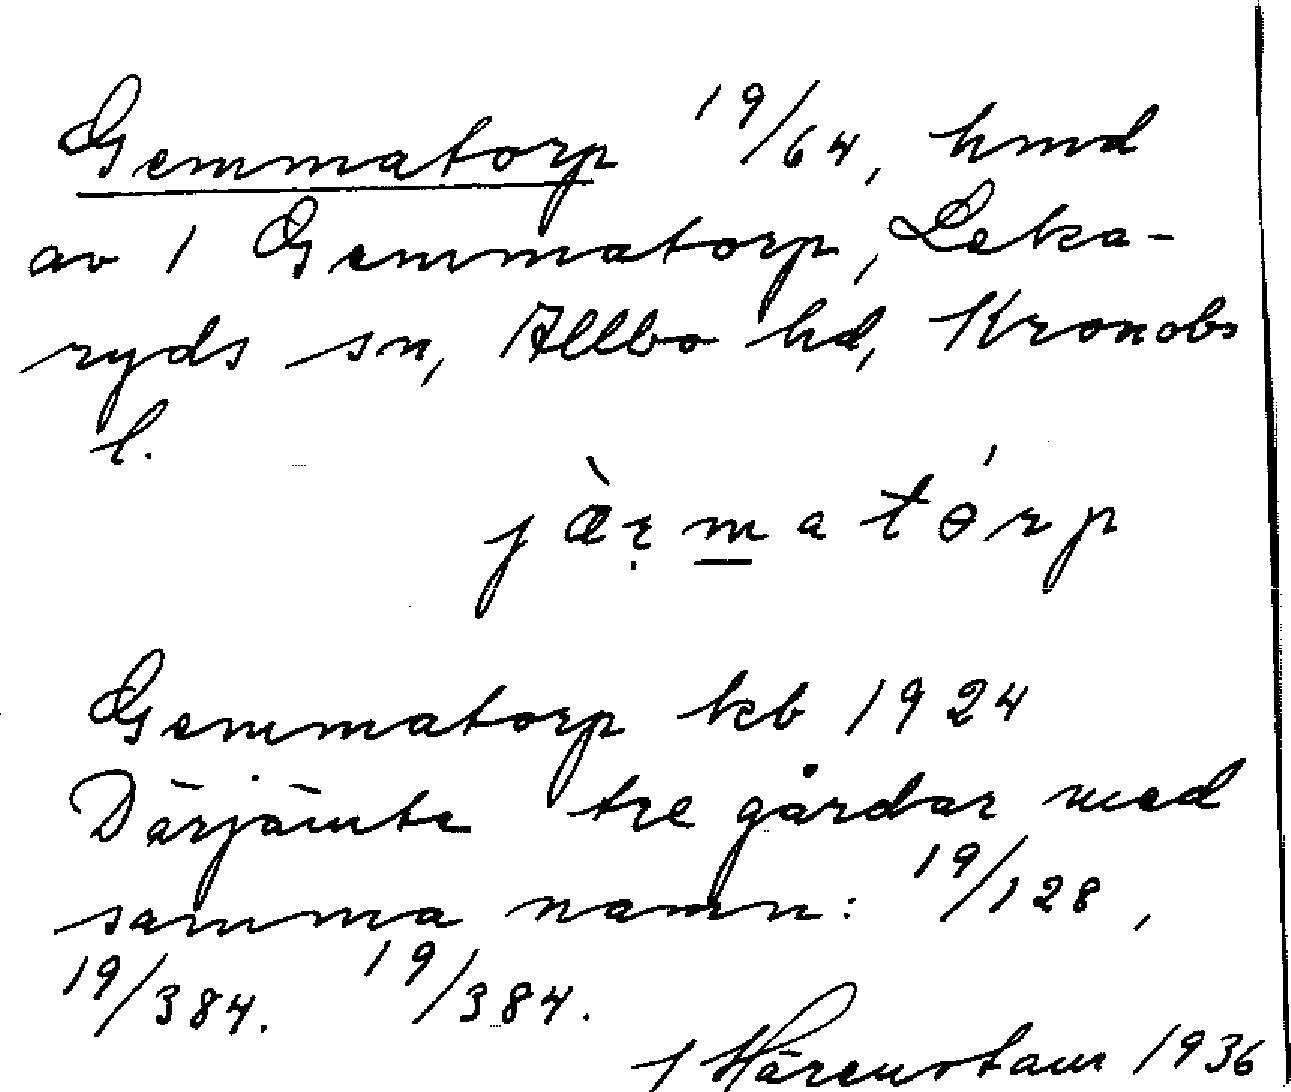 Gemmatorp 19/64, hmd
av 1 Gemmatorp, Leka-
ryds sn, Allbo hd, Kronobs
l.
Gemmatorp kb 1924
Därjämte tre gårdar med
samma namn: 19/128,
19/384. 19/384.
1936